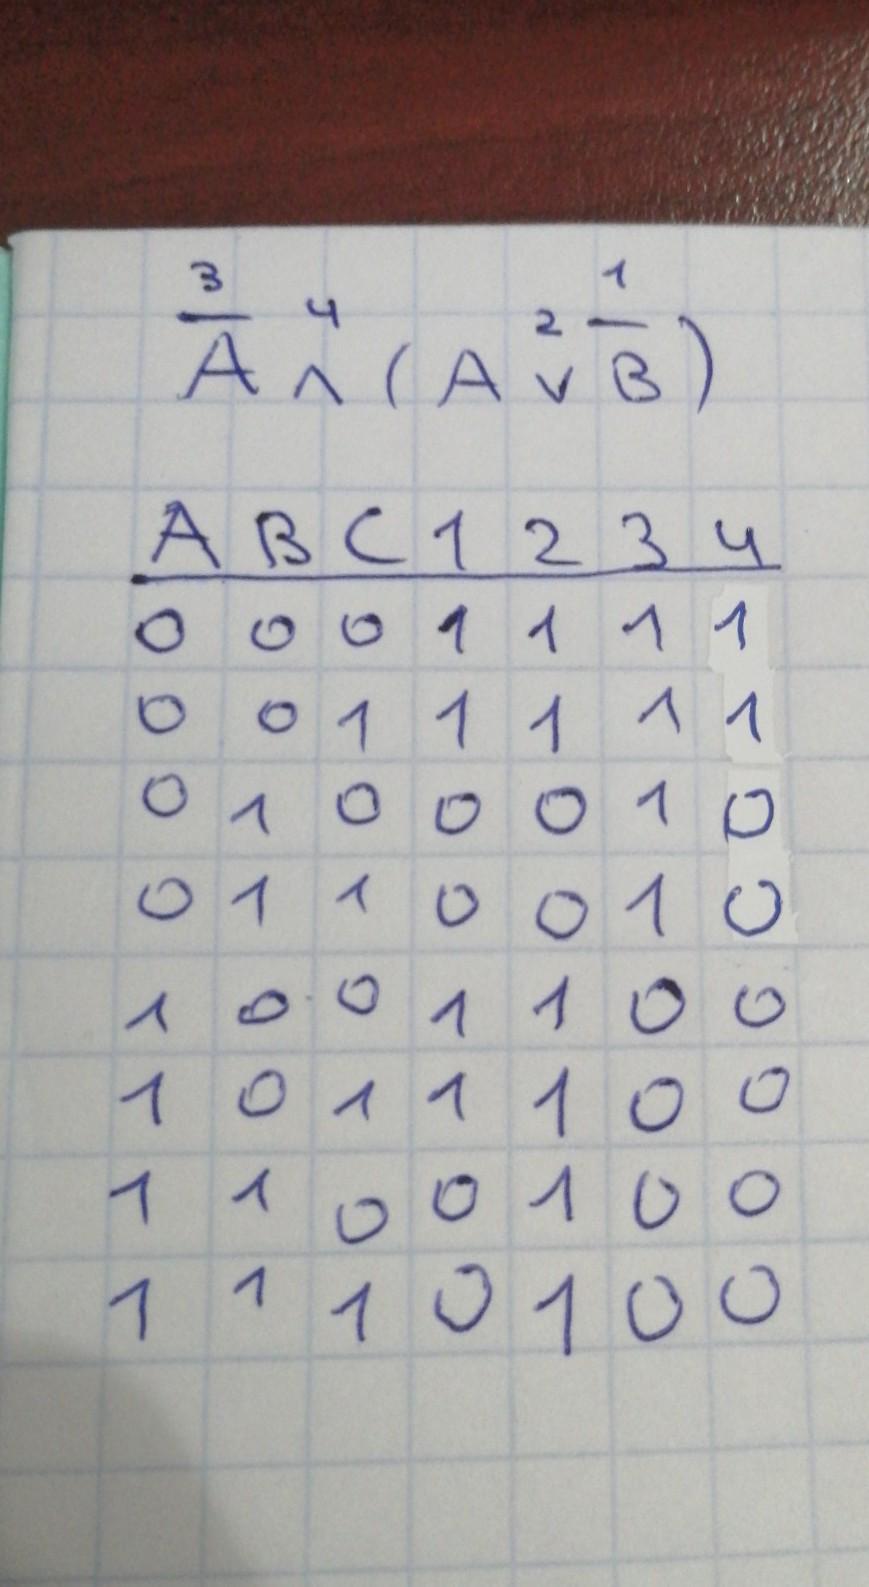 3 4 2 1
A̅ ∧ (A ∨ B̅)
A B C 1 2 3 4
0 0 0 1 1 1 1
0 0 1 1 1 1 1
0 1 0 0 0 1 0
0 1 1 0 0 1 0
1 0 0 1 1 0 0
1 0 1 1 1 0 0
1 1 0 0 1 0 0
1 1 1 0 1 0 0